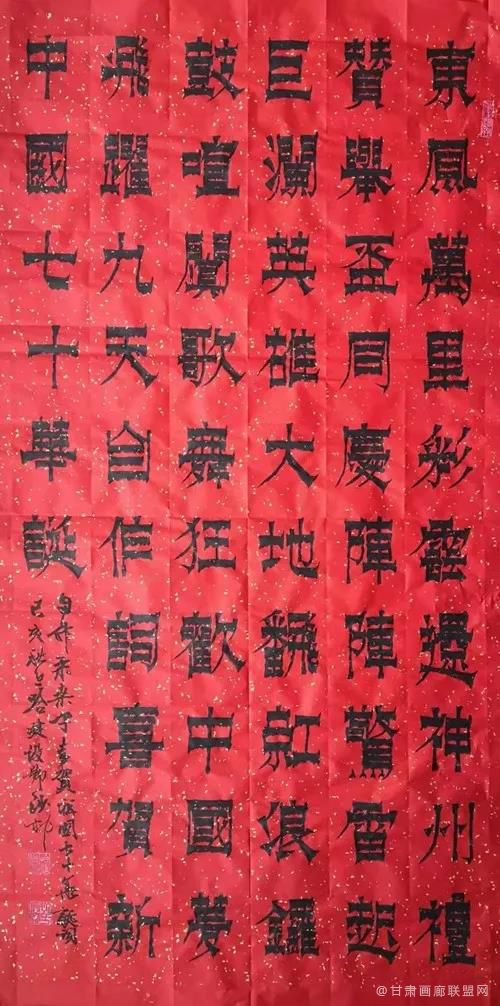 東風萬里彩雲邊神州禮
贊舉盃同慶陣陣驚雷起
巨瀾英雄大地飜紅浪鑼
鼓喧闐歌舞狂歡中國夢
飛躍九天自作詞喜賀新
中國七十華誕
自作采桑子喜賀 國七十華誕
己亥
@甘肃画廊联盟网